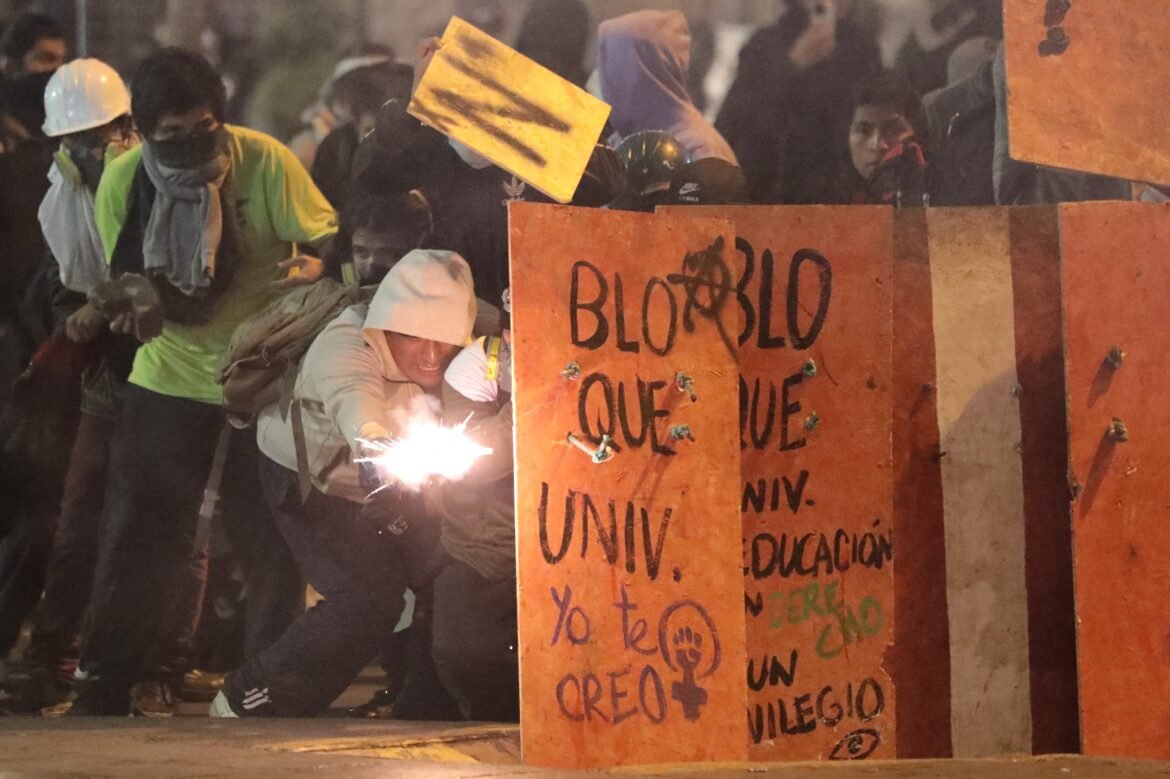 BLO
QUE
UNIV.
Yo te
CREO
BLO
QUE
UNIV.
EDUCACIÓN
DERE
CHO
UN